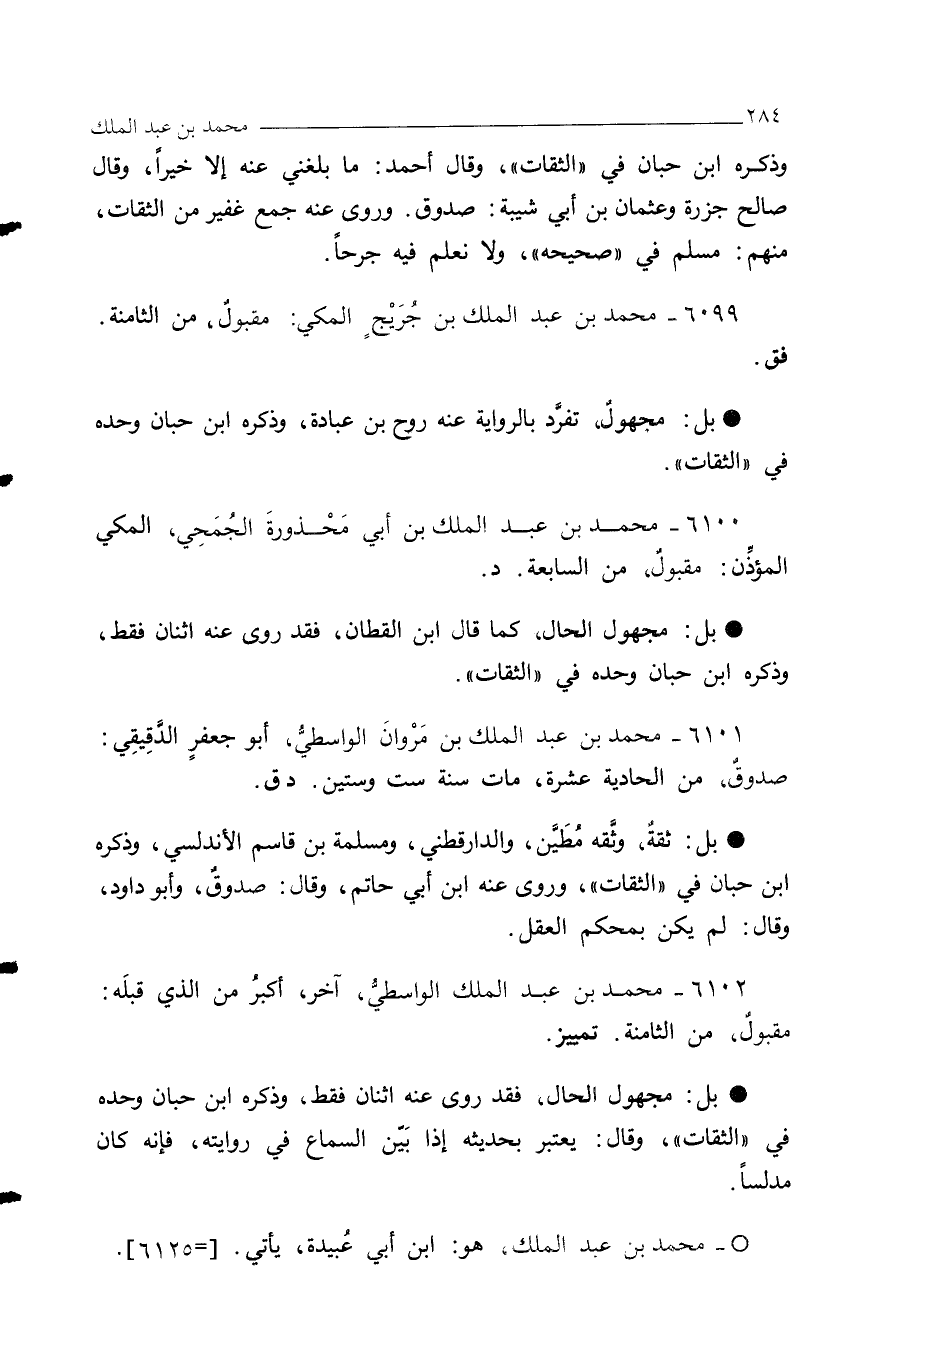 ٢٨٤ محمد بن عبد الملك
وذكره ابن حبان في «الثقات»، وقال أحمد: ما بلغني عنه إلا خيراً، وقال
صالح جزرة وعثمان بن أبي شيبة: صدوق. وروى عنه جمع غفير من الثقات،
منهم: مسلم في «صحيحه»، ولا نعلم فيه جرحاً.
٦٠٩٩ ـ محمد بن عبد الملك بن جُرَيْجٍ المكي: مقبولٌ، من الثامنة.
فق.
● بل: مجهولٌ، تفرَّد بالرواية عنه روح بن عبادة، وذكره ابن حبان وحده
في «الثقات».
٦١٠٠ ـ محمد بن عبد الملك بن أبي مَحْذورةَ الجُمَحِي، المكي
المؤذِّن: مقبولٌ، من السابعة. د.
● بل: مجهول الحال، كما قال ابن القطان، فقد روى عنه اثنان فقط،
وذكره ابن حبان وحده في «الثقات».
٦١٠١ ـ محمد بن عبد الملك بن مَرْوانَ الواسطيُّ، أبو جعفرٍ الدَّقِيقِي:
صدوقٌ، من الحادية عشرة، مات سنة ست وستين. د ق.
● بل: ثقةٌ، وثَّقه مُطَيَّن، والدارقطني، ومسلمة بن قاسم الأندلسي، وذكره
ابن حبان في «الثقات»، وروى عنه ابن أبي حاتم، وقال: صدوقٌ، وأبو داود،
وقال: لم يكن بمحكم العقل.
٦١٠٢ ـ محمد بن عبد الملك الواسطيُّ، آخر، أكبرُ من الذي قبلَه:
مقبولٌ، من الثامنة. تمييز.
● بل: مجهول الحال، فقد روى عنه اثنان فقط، وذكره ابن حبان وحده
في «الثقات»، وقال: يعتبر بحديثه إذا بَيّن السماع في روايته، فإنه كان
مدلساً.
○ ـ محمد بن عبد الملك، هو: ابن أبي عُبيدة، يأتي. [=٦١٢٥].